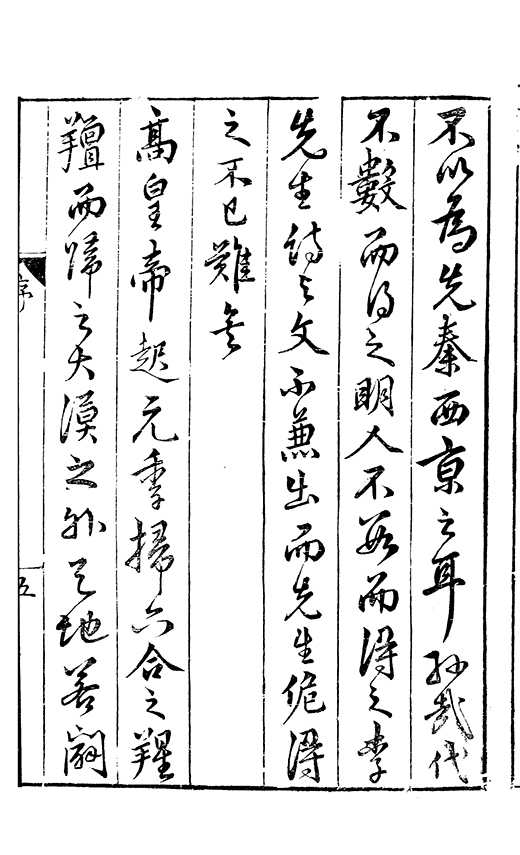 不以為先秦西京之耳孫哉代
不數而得之明人不數而得之李
先生詩與文不兼出而先生得
之不已難矣
高皇帝起元季掃六合之
羶而歸之大漠之外天地若闢
序
五